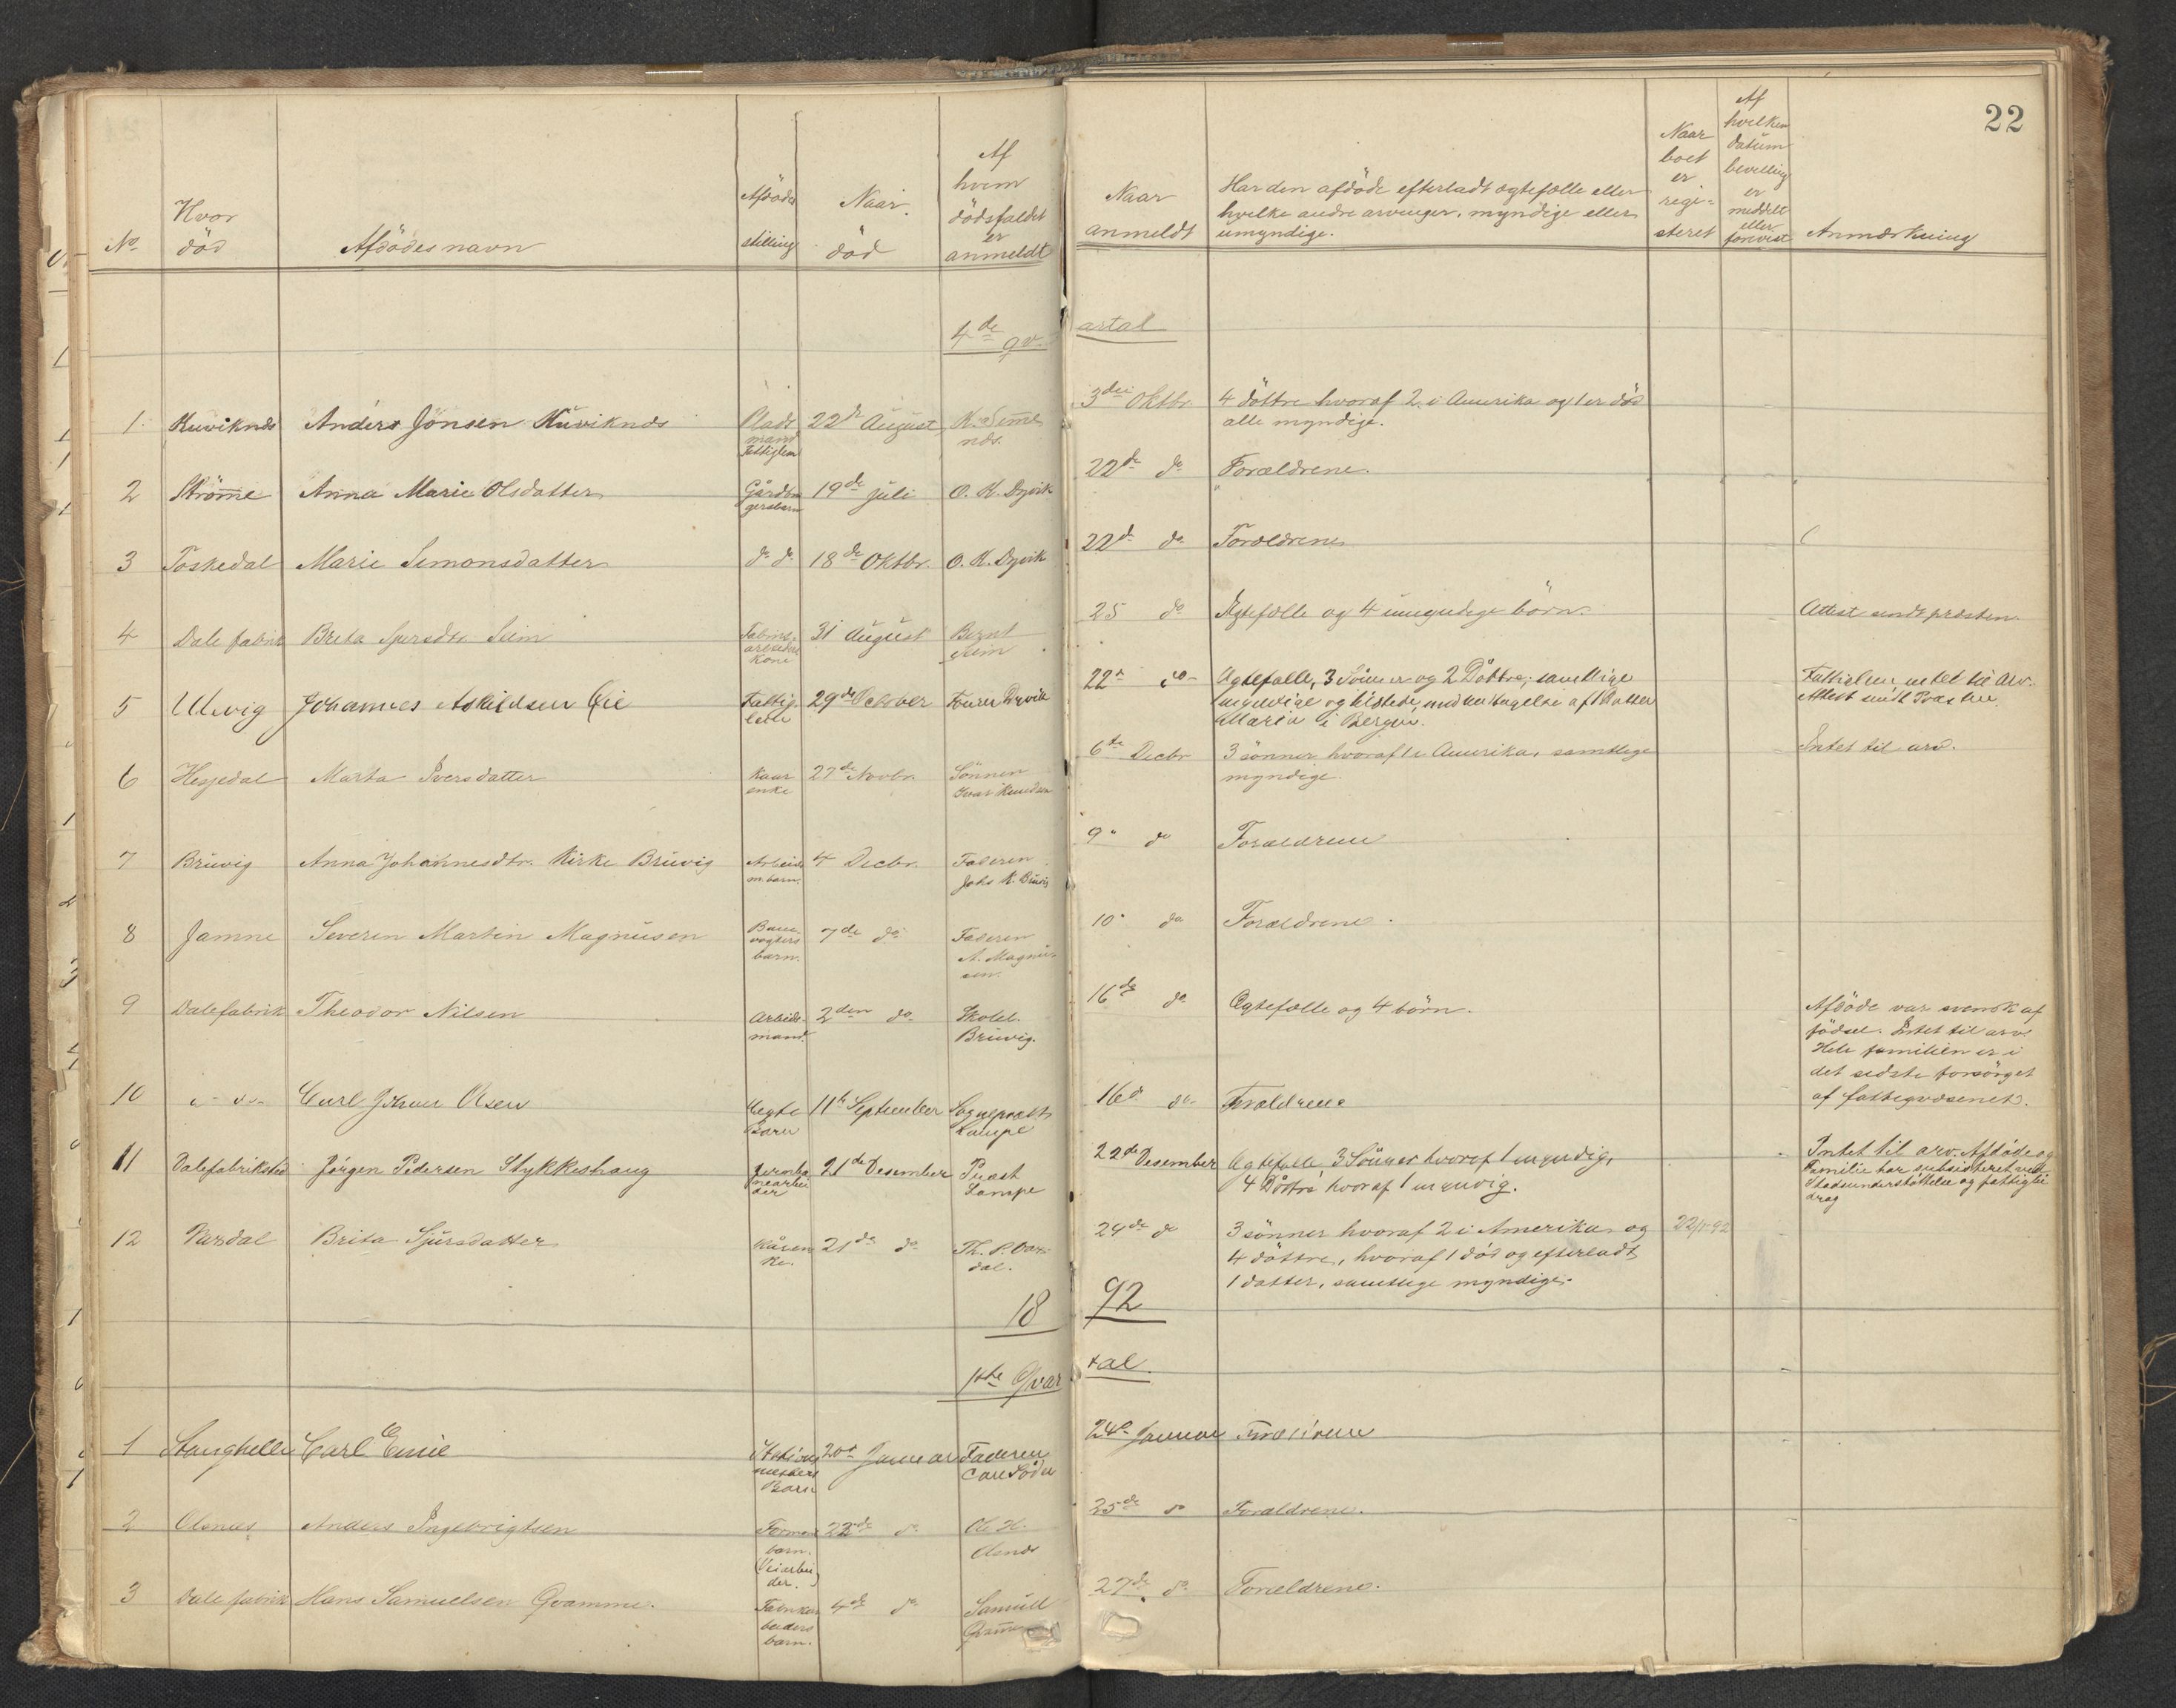 22
No.
Hvor
död
Afdödes navn
Afdödes
stilling
Naar
död
Af
hvem
dödsfaldet
er
anmeldt
Naar
anmeldt
Har den afdöde efterladt ægtefælle eller
hvilke andre arvinger, myndige eller
umyndige.
Naar
boet
er
regi-
steret
Af
hvilken
datum
bevilling
er
meddelt
eller
forevist
Anmærkning
4de qv-
artal
1. Anders Jonsen
Plads
mand
22d August
3die Oktbr. 4 döttre hvoraf 2 i Amerika og 1 er död
alle myndige.
2 Strömme Anna Marie Olsdatter
Gårdbru
gersbarn
19de juli O. K. Dyvik
22de do Forældrene.
3 Toskedal Marie Simonsdatter do do 18de Oktbr. O. K. Dyvik
22d do Forældrene
4 Dale fabrik Brita Sjursdtr. Seim
kone
31 August
Bernt
Seim
25 do Ægtefælle og 4 umyndige börn.
Attest sendt præsten.
5 Johannes
Fattig-
29de October
22d Ægtefælle, 3 Sönner og 2 Döttre, samtlige
myndige og tilstede, med undtagelse af 1 Datter
Maria i Bergen.
intet til Arv.
Attest sendt Præsten.
6 Hesjedal Marta Iversdatter
Kaar
enke
27de Novbr.
Sönnen
Ivar Knudsen
6te Decbr 3 sönner hvoraf 1 i Amerika, samtlige
myndige.
Intet til arv.
7 Bruvig Anna Johannesdtr. Kirke Bruvig
Arbeids
m. barn.
4 Decbr.
Faderen
Johs K. Bruvig
9 do Forældrene
8 Jamne Severin Martin Magnusen
Bane
vogters
barn.
7de do
Faderen
A. Magnu-
sen.
10 do Forældrene.
9 Dalefabrik Theodor Nilsen
Arbeids-
mand.
2den do
Skolel.
Bruvig.
16de do Ægtefælle og 4 börn.
Afdöde var svensk af
födsel. Intet til arv.
Hele familien er i
det sidste forsörget
af fattigvæsenet.
10 Carl Johan Olsen
Ægte
Barn
11te September
Sogneprest
Lampe
16d do Forældrene
11 Dalefabriksted Jörgen Pedersen Stykkeshaug
Jernba
nearbei
der
21de Desember
Prost
Lampe
22de Desember Ægtefælle, 3 Sönner hvoraf 1 myndig,
4 Döttre hvoraf 1 myndig.
Intet til arv. Afdöde og
Familie har subsisteret ved
Stadsunderstöttelse og fattigbi
drag
12 Vassdal Brita Sjursdatter
Kåren
ke.
21de do
24de do 3 sönner hvoraf 2 i Amerika og
4 döttre, hvoraf 1 död og efterladt
1 datter, samtlige myndige.
18
92
1ste Qvar
tal
1 Stanghelle Carl Emil
Stations
mesters
Barn
20d Januar
Faderen
24d Januar Forældrene
2 Olsnæs Anders Ingebrigtsen
barn.
(Veiarbei
der.)
22de do
Ole H.
Olsnæs
25de do Forældrene.
3 Dale fabrik Hans Samuelsen Qvamme.
Fabrikar
beiders
barn.
4de do
Samuel
Qvamme
27de do Forældrene.